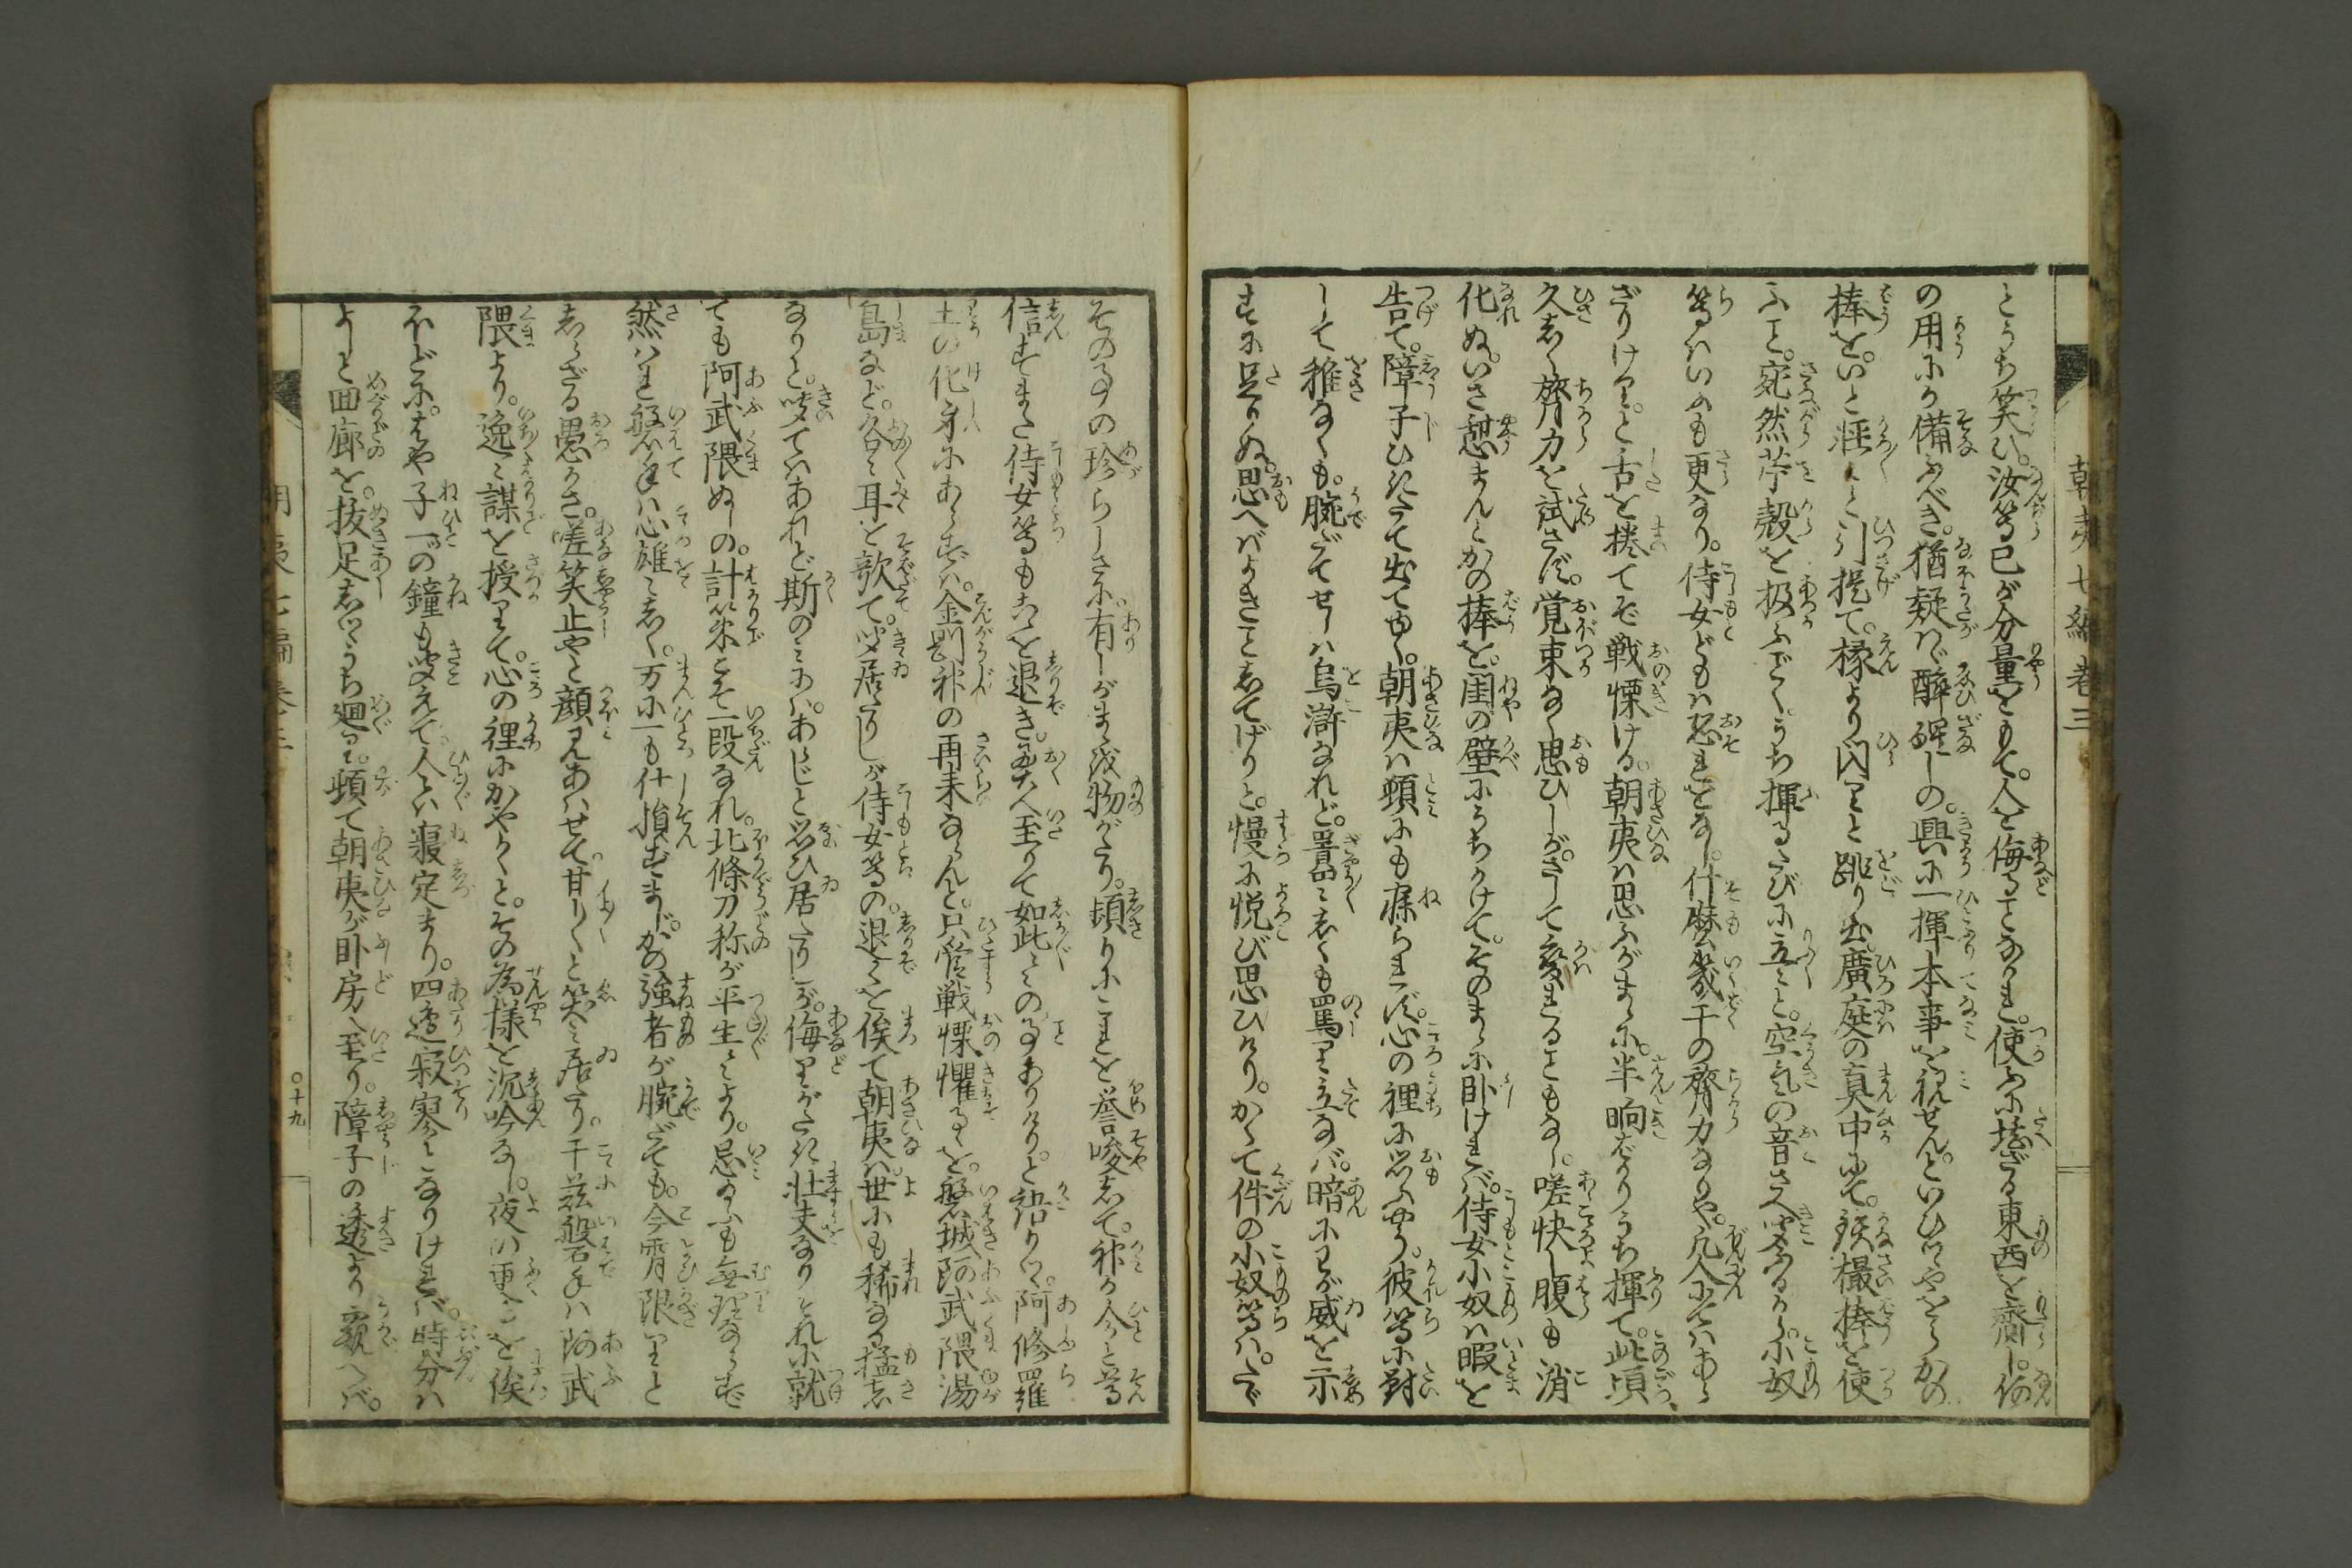 朝夷七編巻三
とうち笑ひ。汝等己が分量をもて。人を侮ることなかれ。使ふに堪ざる東西を齎し。何
の用にか備ふべき。猶疑はゞ醉醒しの。興に一揮本事を視せん。といひつゝやをらかの
棒を。いと軽々と引提て。椽より閃りと跳り出。廣庭の真中にて。鉄撮棒を使
ふこと。宛然苧殻を扱ふごとく。うち揮るたびに立々と。空気の音さへ聞ゆるから。小奴
等はいふも更なり。侍女どもは恐れをなし。什麼幾干の膂力なりや。凡人にてはあら
ざりけりと。舌を捲てぞ戦慄ける。朝夷は思ふがまゝに。半晌ばかりうち揮て。此頃
久しく膂力を試さず。覚束なく思ひしが。さして変れることもなし。嗟快し腹も消
化ぬ。いざ憩まんとかの棒を。閨の壁にうちかけて。そのまゝに臥ければ。侍女小奴は暇を
告て。障子ひきたて出てゆく。朝夷は頓にも寐られず。心の裡に思ふやう。彼等に對
して稚なくも。腕だてせしは烏滸なれど。囂々しくも罵り立なば。暗にわが威を示
すに足りぬ。思へばよきことしてげりと。慢に悦び思ひけり。かくて件の小奴等は。たゞ
その事の珍らしさに。有しがまゝ成物がたり。頻りにこれを誉唆して。神か今人と尊
信すすまた侍女等もこゝを退き。奥へ至りて如此々々の事ありけりと語りつ。阿修羅
王の化身にあらずは。金剛神の再来ならんと。只管戦慄懼るゝを。磐城阿武隈湯
島など。各々耳を欹て。聞居たりしが侍女等の。退くを俟て朝夷は。世にも稀なる猛者
なりと。聞てはあれど斯のみには。あらじと思ひ居たりしが。侮りがたき壮夫なりそれに就
ても阿武隈ぬしの。計策こそ一段なれ。北條刀祢が平生より。忌るゝも無理ならず
然はれ磐手は心雄々しく。万に一も什損ずまじ。かの強者が腕だても。今宵限りと
しらざる愚かさ。嗟笑止やと顔見あはせて。甘々と笑み居たり。干茲磐手は阿武
隈より。逸々謀を授りて。心の裡にかやかくと。その為様を沉吟なし。夜の更るを俟
ほどに。はや子一の鐘も聞えて。人々は寝定まり。四邊寂寥となりければ。時分は
よしと回廊を。抜足しつゝうち廻り。頓て朝夷が臥房へ至り。障子の透より窺へば。
朝夷七編巻三
〇十九